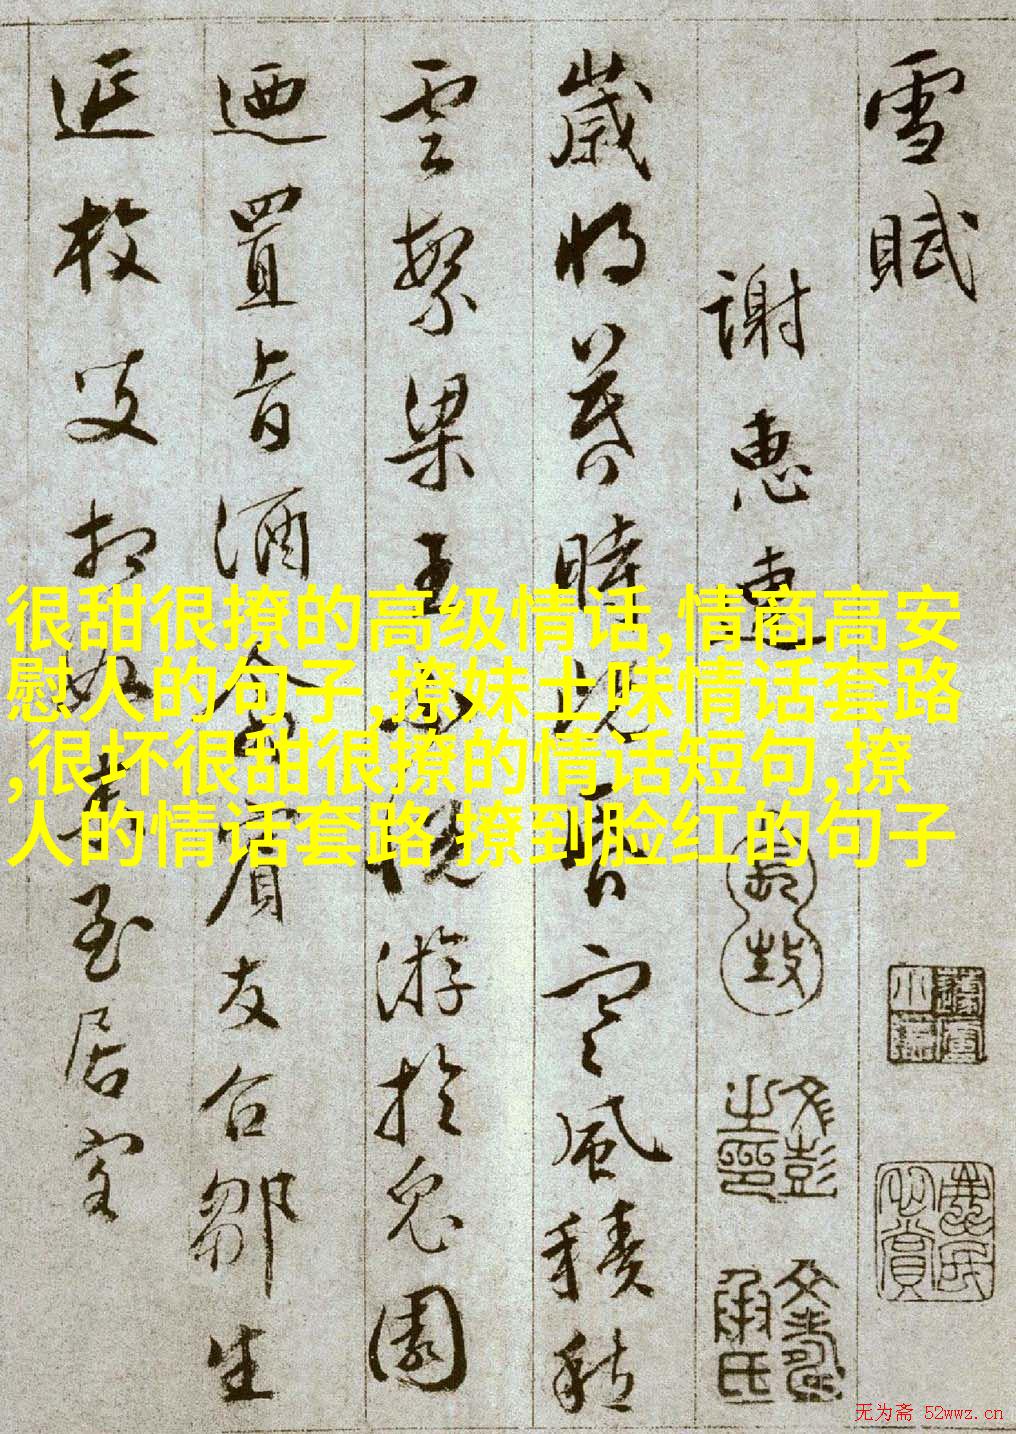 雪賦
謝惠連
歲將暮時既昏寒風積愁
雲繁梁王不悅游於兔園
迺置旨酒命賓友召鄒生
延枚叟相如末至居客
很甜很撩的高级情话,情商高安
慰人的句子,撩妹土味情话套路
,很坏很甜很撩的情话短句,撩
人的情话套路,撩到脸红的句子
无为斋 52wwz.cn